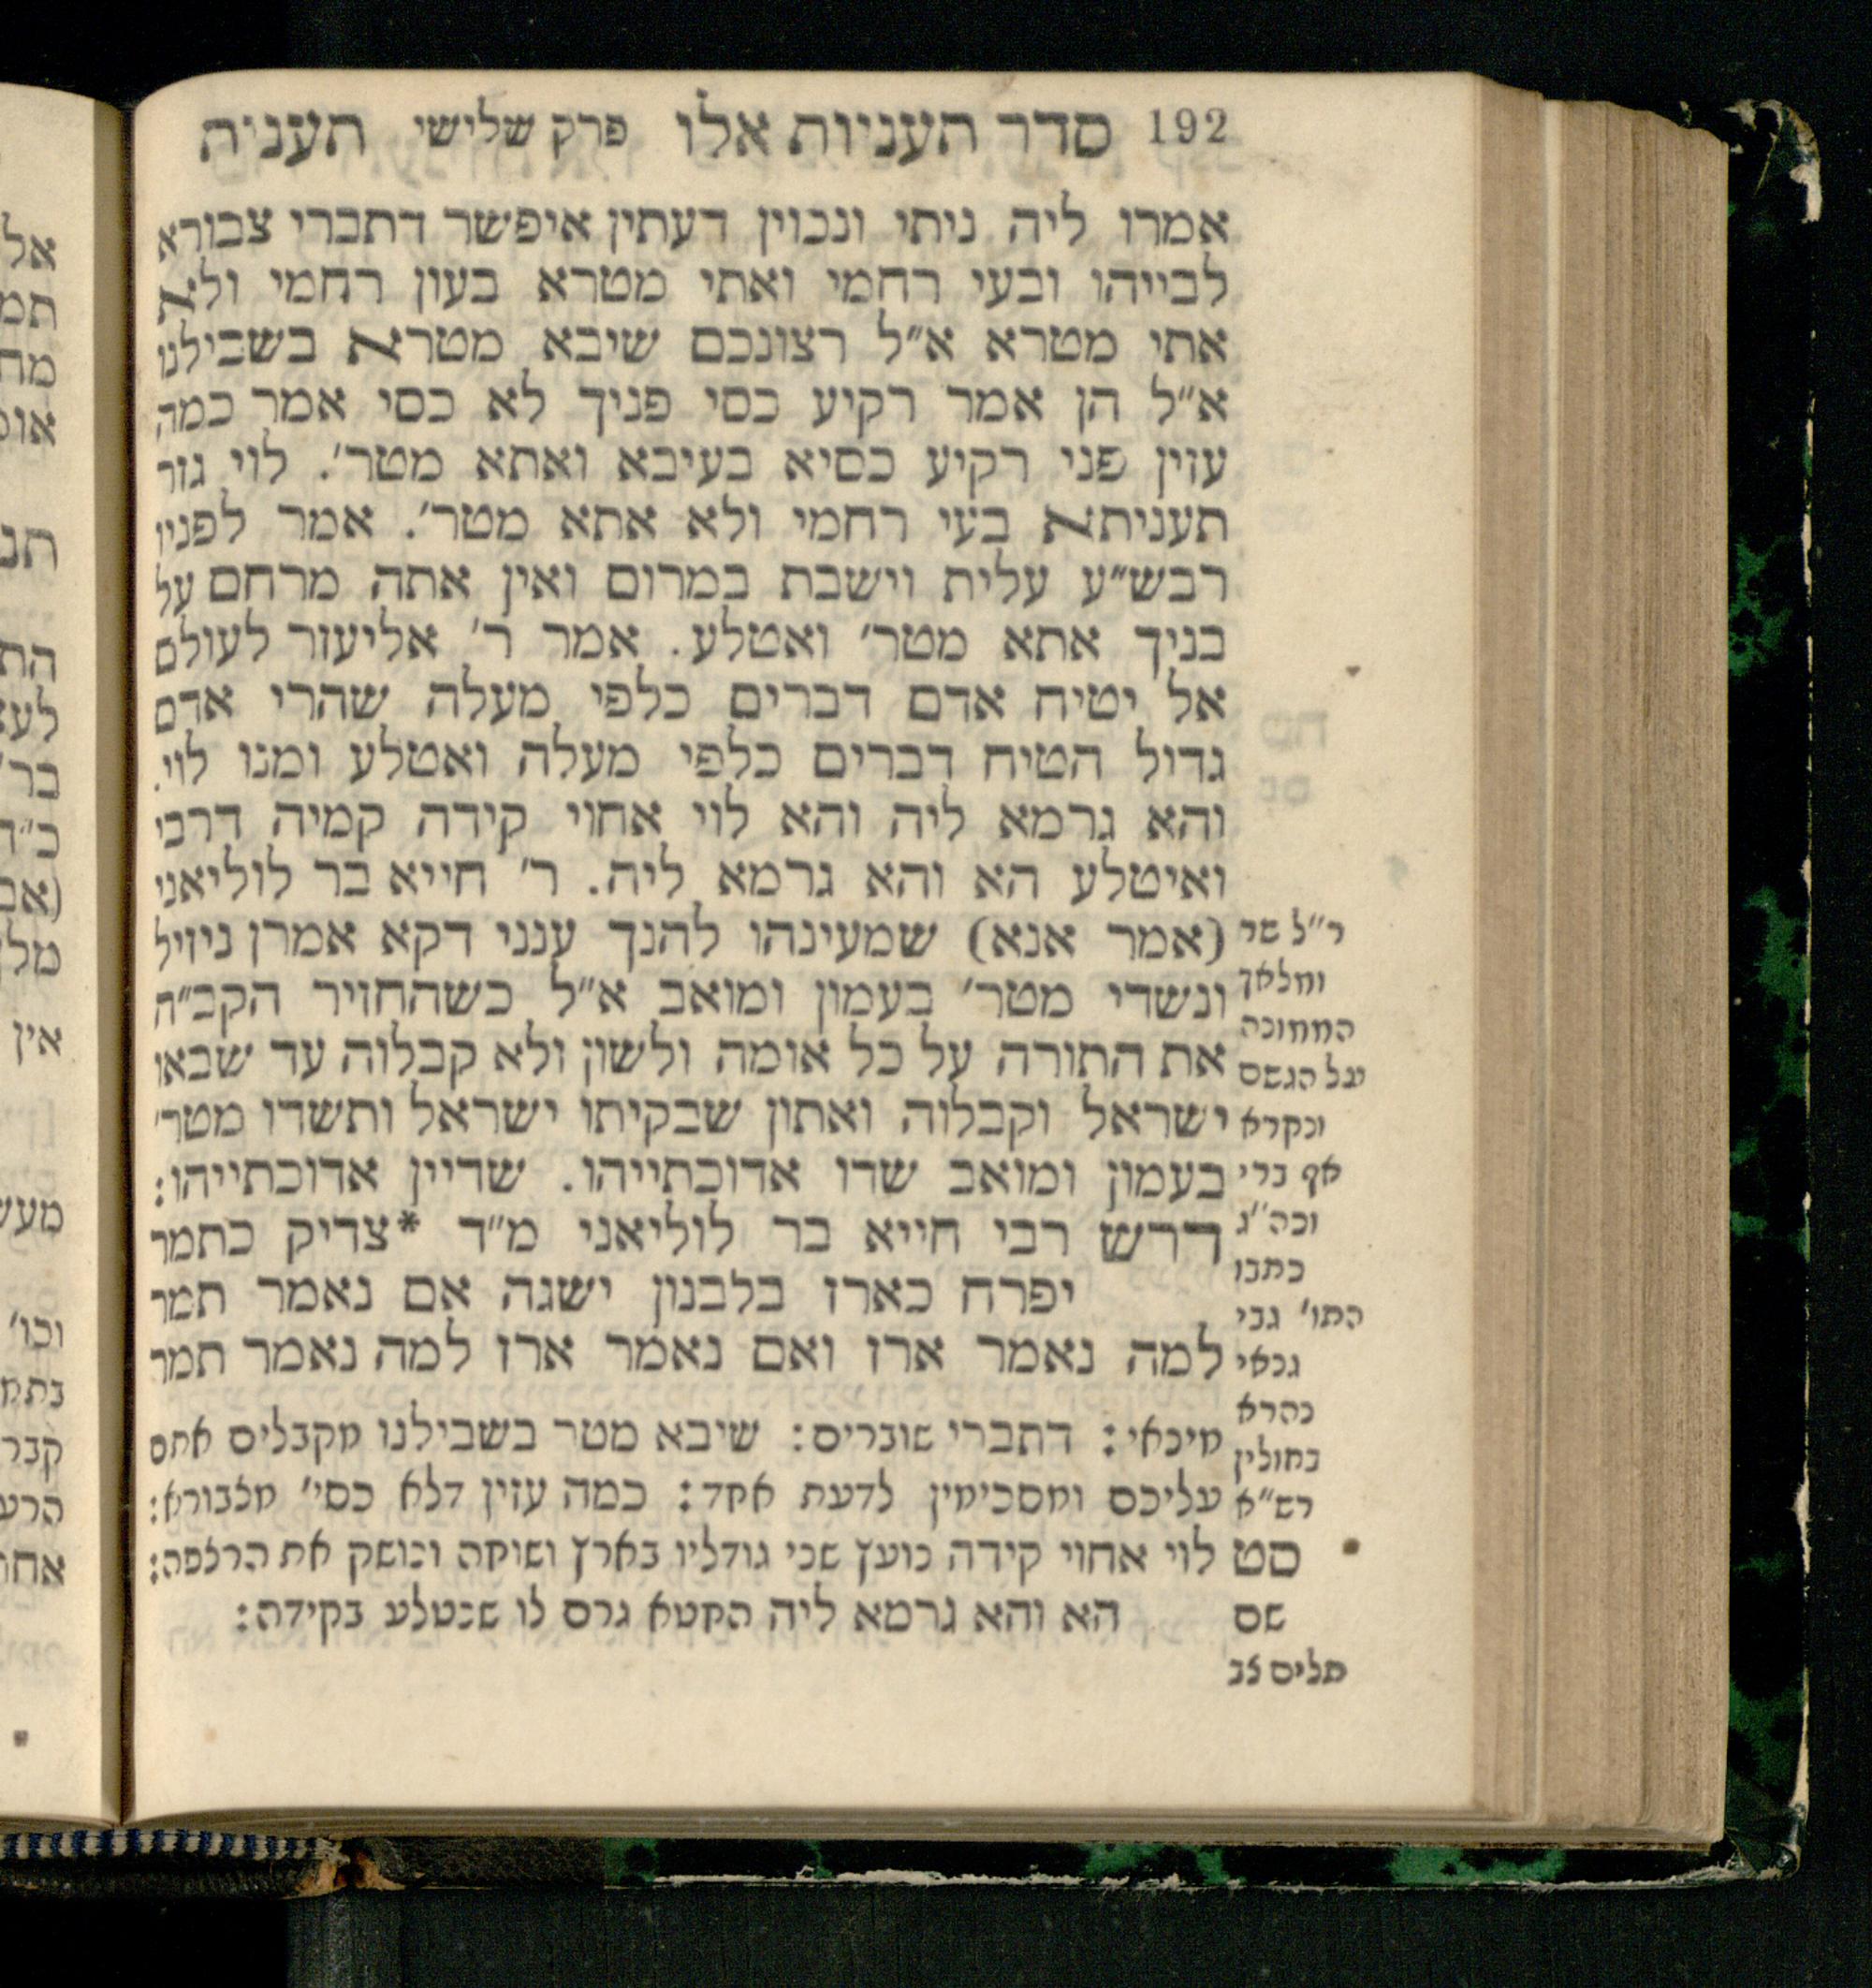 192 סדר תעניות אלו פרק שלישי תענית
אמרו ליה ניתי ונכוין דעתין איפשר דתברי צבורא
לבייהו ובעי רחמי ואתי מטרא בעון רחמי ולא
אתי מטרא א״ל רצונכם שיבא מטרא בשבילנו
א״ל הן אמר רקיע כסי פניך לא כסי אמר כמה
עזין פני רקיע כסיא בעיבא ואתא מטר׳. לוי גזר
תעניתא בעי רחמי ולא אתא מטר׳. אמר לפניו
רבש״ע עלית וישבת במרום ואין אתה מרחם על
בניך אתא מטר׳ ואטלע. אמר ר׳ אליעזר לעולם
אל יטיח אדם דברים כלפי מעלה שהרי אדם
גדול הטיח דברים כלפי מעלה ואטלע ומנו לוי.
והא גרמא ליה והא לוי אחוי קידה קמיה דרבי
ואיטלע הא והא גרמא ליה. ר׳ חייא בר לוליאני
(אמר אנא) שמעינהו להנך ענני דקא אמרן ניזיל
ונשדי מטר׳ בעמון ומואב א״ל כשהחזיר הקב״ה
את התורה על כל אומה ולשון ולא קבלוה עד שבאו
ישראל וקבלוה ואתון שבקיתו ישראל ותשדו מטר׳
בעמון ומואב שדו אדוכתייהו. שדיין אדוכתייהו:
דרש רבי חייא בר לוליאני מ״ד *צדיק כתמר
יפרח כארז בלבנון ישגה אם נאמר תמר
למה נאמר ארז ואם נאמר ארז למה נאמר תמר
מיכאי: דתברי שוברים: שיבא מטר בשבילנו מקבלים אתם
עליכם ומסכימין לדעת אחד: כמה עזין דלא כסי׳ מצבורא:
לוי אחוי קידה נועץ שני גודליו בארץ ושוחה ונושק את הרצפה:
הא והא גרמא ליה החטא גרם לו שנטלע בקידה:
ר״ל שר
ומלאך
הממונה
על הגשם
ונקרא
אף ברי
וכה״ג
כתבו
התו׳ גבי
גנאי
נהרא
בחולין
רש״א
סט
שם
תלים צב